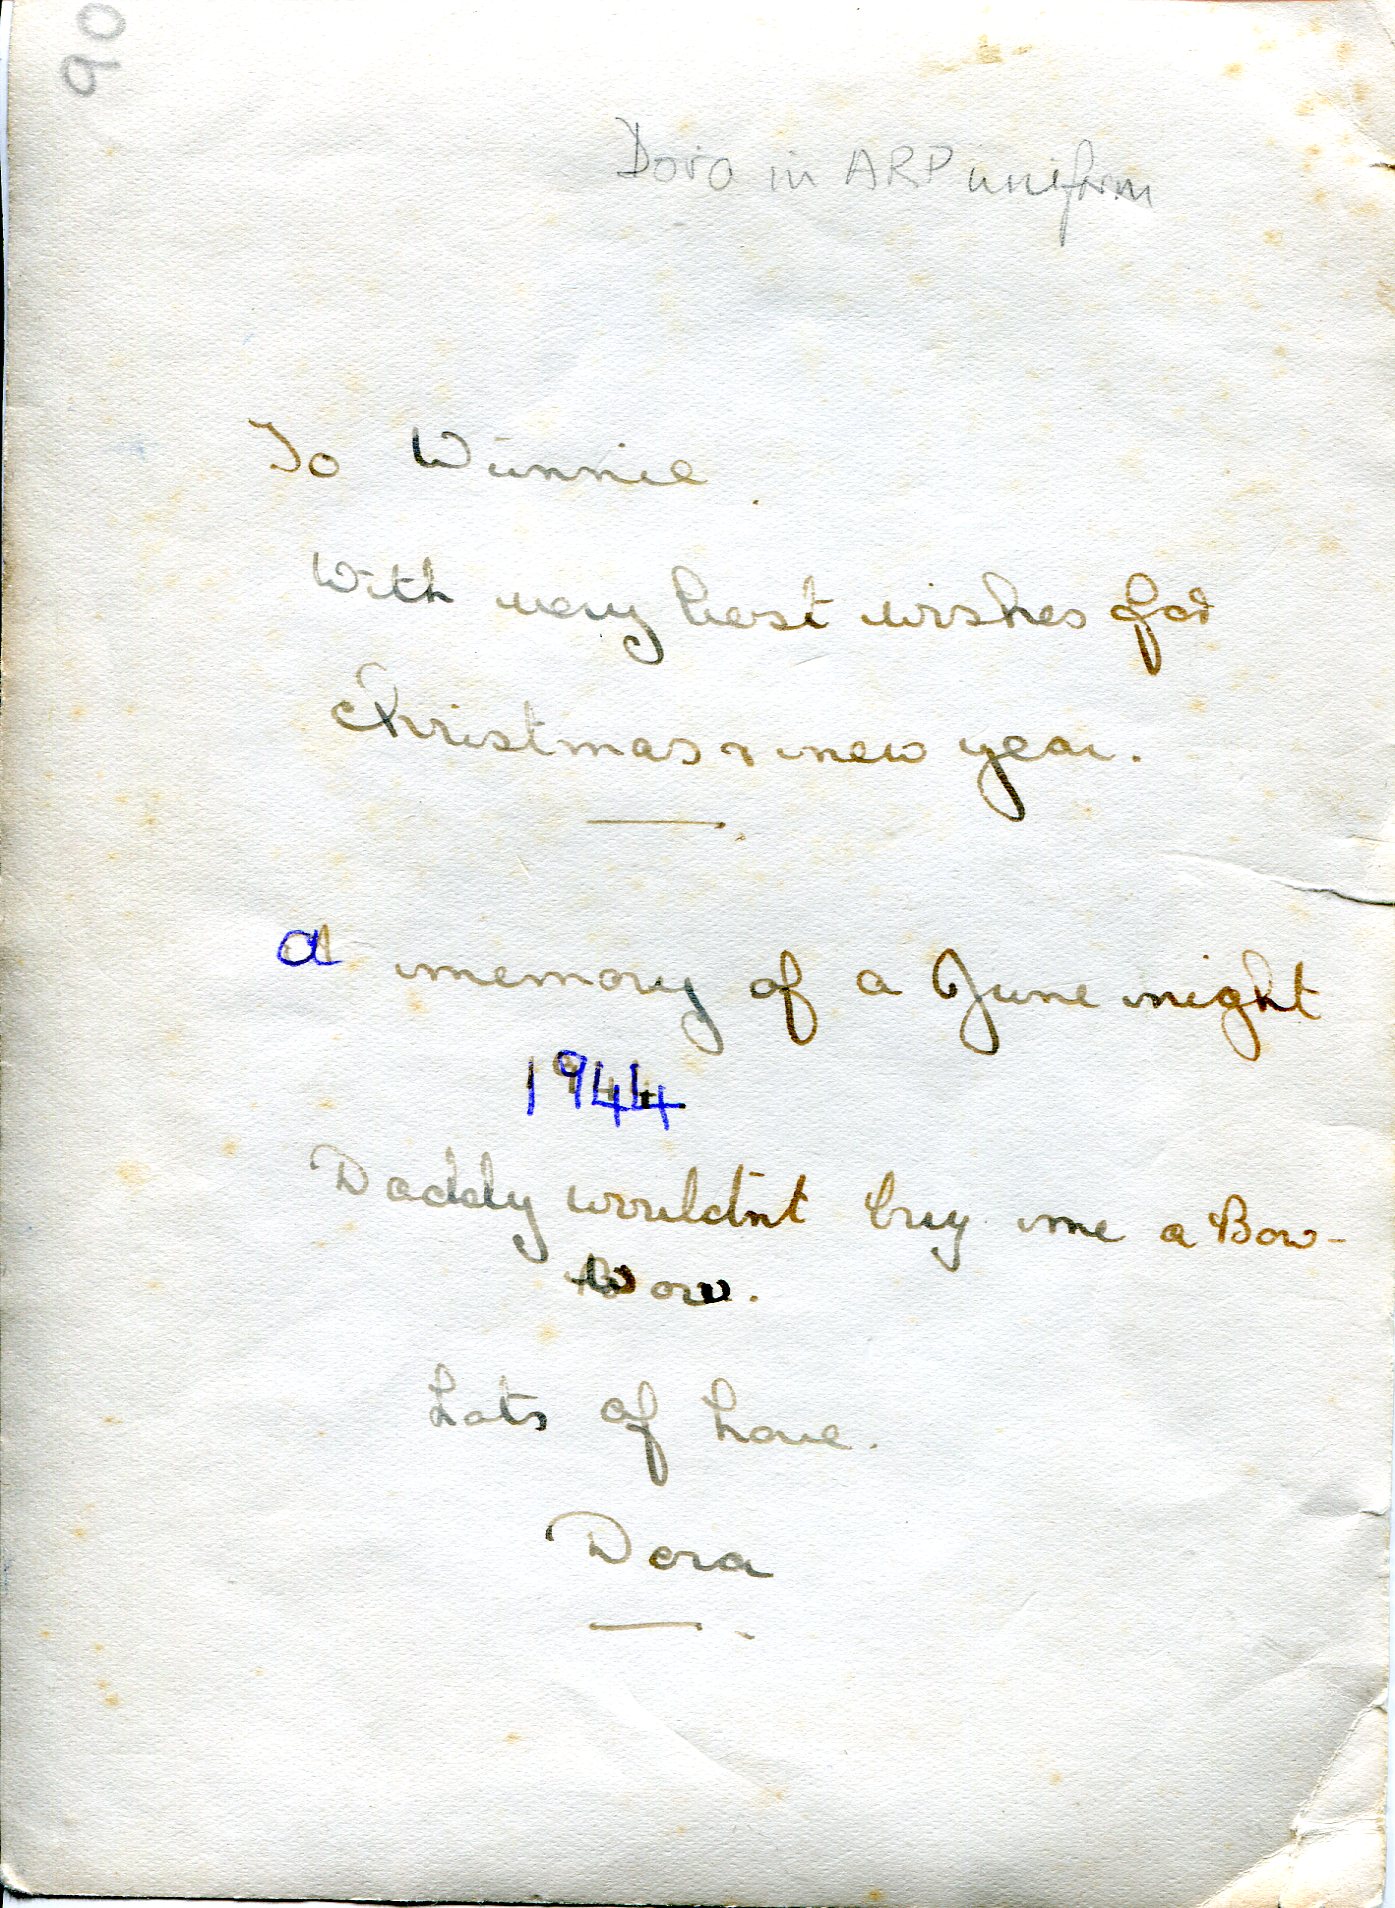 90
Dora in ARP uniform
To Winnie
With very best wishes for
Christmas & new year.
a memory of a June night
1944
Daddy wouldn't buy me a Bow-
Wow.
Lots of Love.
Dora